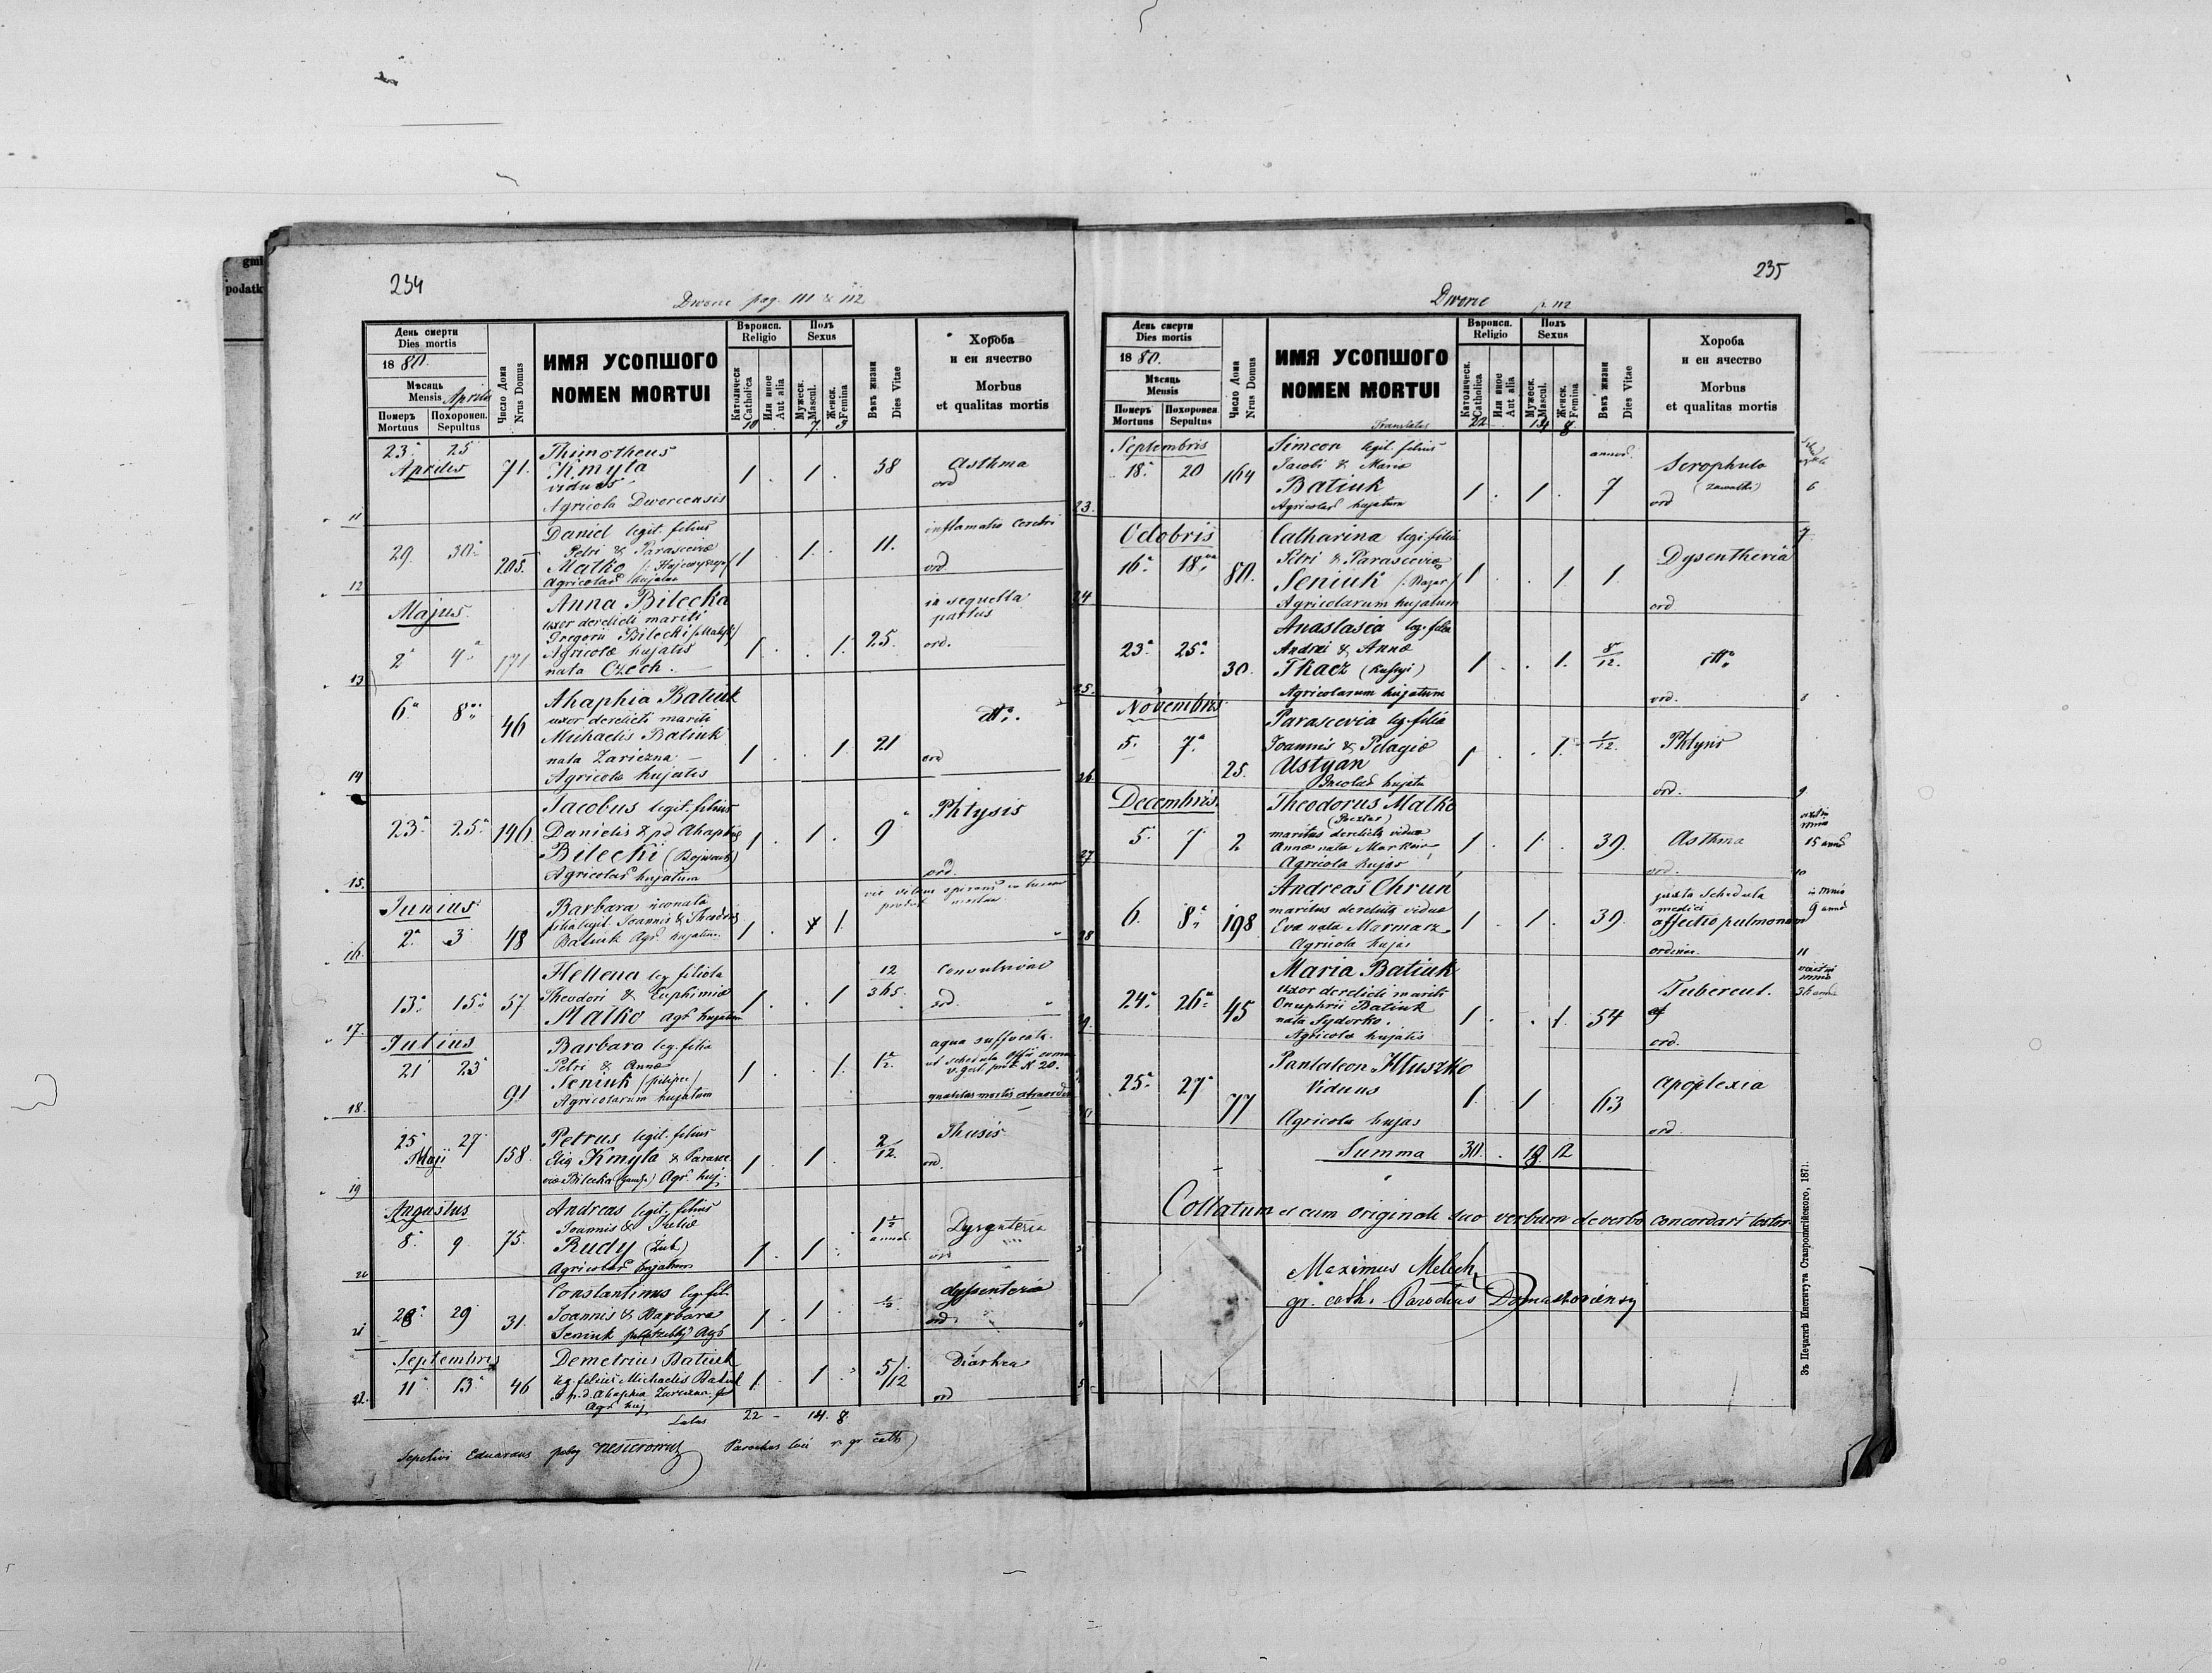 gmi
podatk
234
Dworce pag. 111 & 112
День смерти
Dies mortis
1880.
Мѣсяць
Mensis Aprilis
Померъ
Mortuus
Похоронен.
Sepultus
Число Дома
Nrus Domus
ИМЯ УСОПШОГО
NOMEN MORTUI
Вѣроисп.
Religio
Католическ
Catholica
Или иное
Aut alia
Полъ
Sexus
Мужеск.
Mascul.
Женск.
Femina
Вѣкъ жизни
Dies Vitae
Хороба
и еи ячество
Morbus
et qualitas mortis
10 7. 3
11 23. 25 Aprilis 71. Thimotheus
Kmyta
viduus
Agricola Dworcensis
1 . 1 . 38 Asthma
ord
12 29 30. 205. Daniel legit. filius
Petri & Parasceviæ
Matko
Agricolar hujatum
1 . 1. . 11. inflamatio Cerebri
ord
Majus.
13 2. 4. 171 Anna Bilecka
uxor derelicti mariti
Gregorii Bilecki
Agricolæ hujatis
nata Czech.
1 . . 1. 25. in sequella
partus
ord.
14 6. 8. 46 Ahaphia Batiuk
uxor derelicti mariti
Michaelis Batiuk
nata Zariczna
Agricolæ hujatis
1 . . 1 21 dtto.
ord
15. 23. 25. 146. Jacobus legit. filius
Danielis & pd Ahaphiæ
Bilecki
Agricolar hujatum
1 . 1 . 9 Phtysis
ord.
Junius
16. 2. 3 48 Barbara neonata
filia legit. Joannis &
Batiuk Agr. hujatum.
1 . 1.
17. 13. 15. 57 Hellena leg filiola
Theodori & Euphimiæ
Matko agr hujatum
1 . . 1 12
365. Convulsivae
ord.
Julius
18. 21 23 91 Barbara leg. filia
Petri & Annæ
Seniuk
Agricolarum hujatum
1 . . 1. 1/2. aqua suffocata.
qualitas mortis extraordin
19 25 27 158. Maji
Petrus legit. filius
Eliæ Kmyta & Parasce
viæ Bilecka Agr. huj.
1. 1 . 2/12. Thusis
ord.
Augustus
20 8. 9 75. Andreas legit. filius
Joannis & Juliæ
Rudy (Zub)
Agricolar hujatum
1. 1. 1 1/2
annor. Dysenteria
ord
21 28. 29 31. Constantinus leg. fil.
Joannis & Barbara
Seniuk Agr
1 . 1 . dyssenteria
ord
Septembris
22. 11 13. 46 Demetrius Batiuk
leg. filius Michaelis Batiuk
& p.d. Ahaphia Zariczna
Agr huj
1. 1 5/12 Diarhea
ord
Latus 22 - 14. 8.
Sepelivi Eduardus Parochus loci r. gr. cath
235
Dworce p. 112
День смерти
Dies mortis
1880.
Мѣсяць
Mensis
Померъ
Mortuus
Похоронен
Sepultus
Число Дома
Nrus Domus
ИМЯ УСОПШОГО
NOMEN MORTUI
Вѣроисп.
Religio
Католическ.
Catholica
Или иное
Aut alia
Полъ
Sexus
Мужеск.
Mascul.
Женск.
Femina
Вѣкъ жизни
Dies Vitae
Хороба
и еи ячество
Morbus
et qualitas mortis
Translatus 22 14 8
Septembris
23. 18. 20 164 Simeon legit. filius
Jacobi & Mariæ
Batiuk
Agricolar hujatum
1 . 1 . annor.
7 Scrophulo
ord 6
Octobris
24 16. 18. 80. Catharina legi. filia
Petri & Parasceviæ
Seniuk
Agricolarum hujatum
1 . . 1. 1. Dysentheria
ord 7
25. 23. 25. 30. Anastasia leg. filia
Andrei & Annæ
Tkacz
Agricolarum hujatum
1 . . 1. 8/12. dtto.
ord. 8
Novembris
26. 5. 7. 25. Parascevia leg. filia
Joannis & Pelagiæ
Ustyan
1 . . 1. 1/12. Phtysis
ord. 9
Decembris
27 5. 7 2 Theodorus Matko
maritus derelictæ viduæ
Annæ nata
Agricola hujas
1 . 1. 39. Asthma
ord. 10
15 annos
28 6. 8. 198 Andreas Ohrun
maritus derelictæ viduæ
Eva nata Marmarz
Agricola hujas
1 . 1 . 39. juxta schedula
medici
affectio pulmonum
ordinar. 11
9 annos
24. 26. 45 Maria Batiuk
uxor derelicti mariti
Onuphrii Batiuk
nata Sydorko.
Agricolæ hujatis
1 . . 1. 54 Tubercul.
ord.
25. 27 77 Pantaleon Hluszko
Viduus
Agricola hujas
1. . 1 . 63 apoplexia
ord.
Summa 30. . 18 12
Collatum et cum originali suo verbum de verbo concordari testor
Maximus Melech
gr. cath. Parochus
Зъ Печатнѣ Института Ставропигійского, 1871.